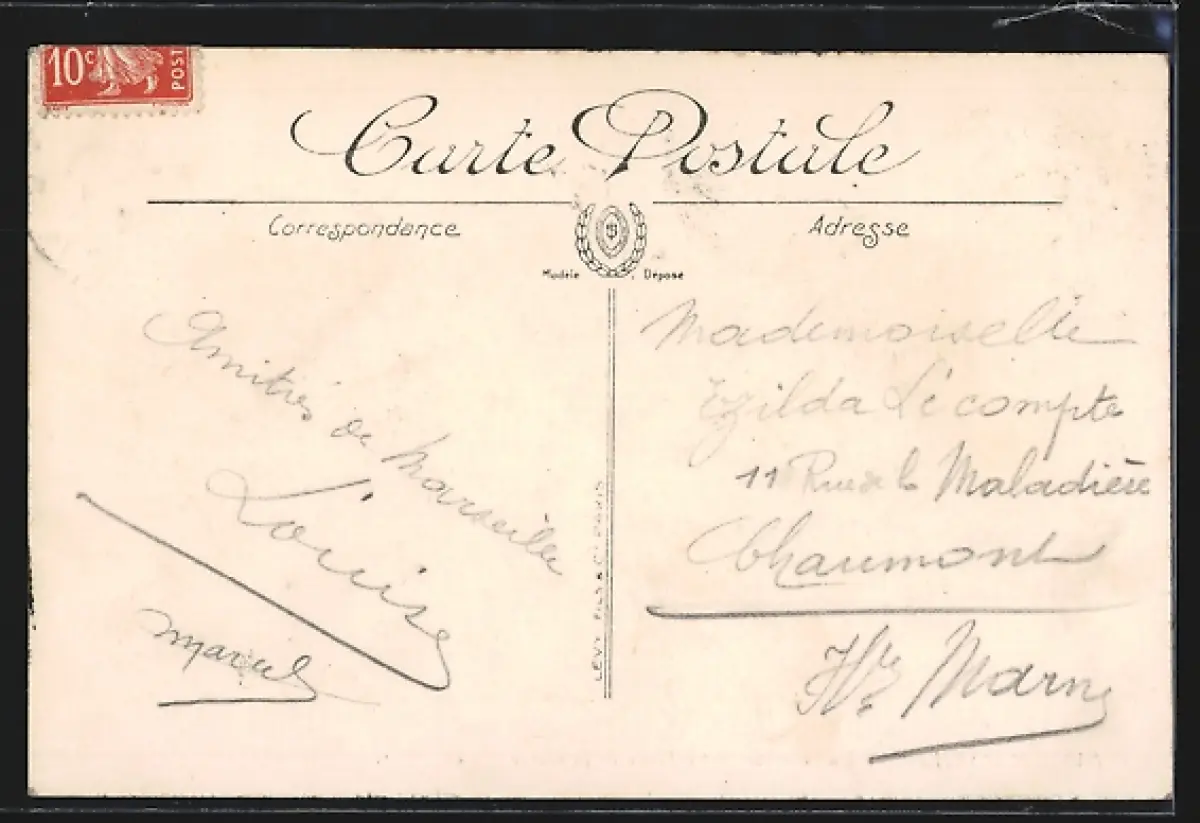 10c POST
Carte Postale
Correspondance
Adresse
Modèle Déposé
Amitiés de Marseille
Louise
Marcel
LEVY FILS & Cie PARIS
Mademoiselle
Ezilda Lécompte
11 Rue de la Maladière
Chaumont
Hte Marne